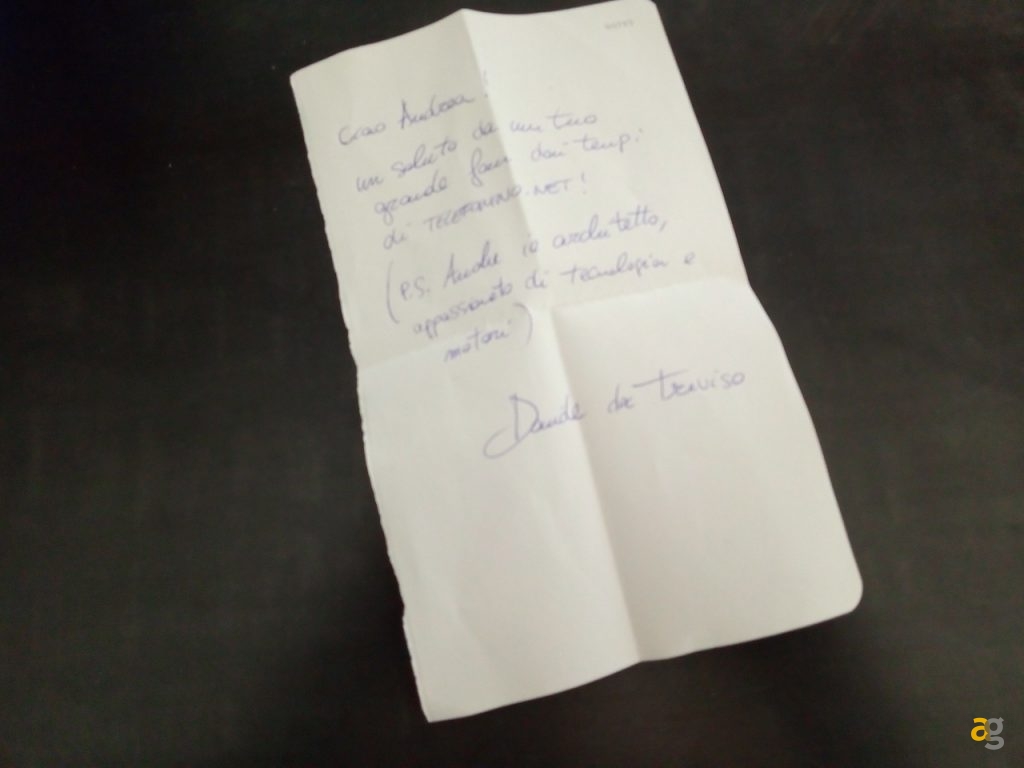 NOTES
Ciao Andrea!
un saluto da un tuo
grande fan dai tempi
di TELEFONINO.NET!
(P.S. Anche io architetto,
appassionato di tecnologia e
motori)
Davide da Treviso
ag